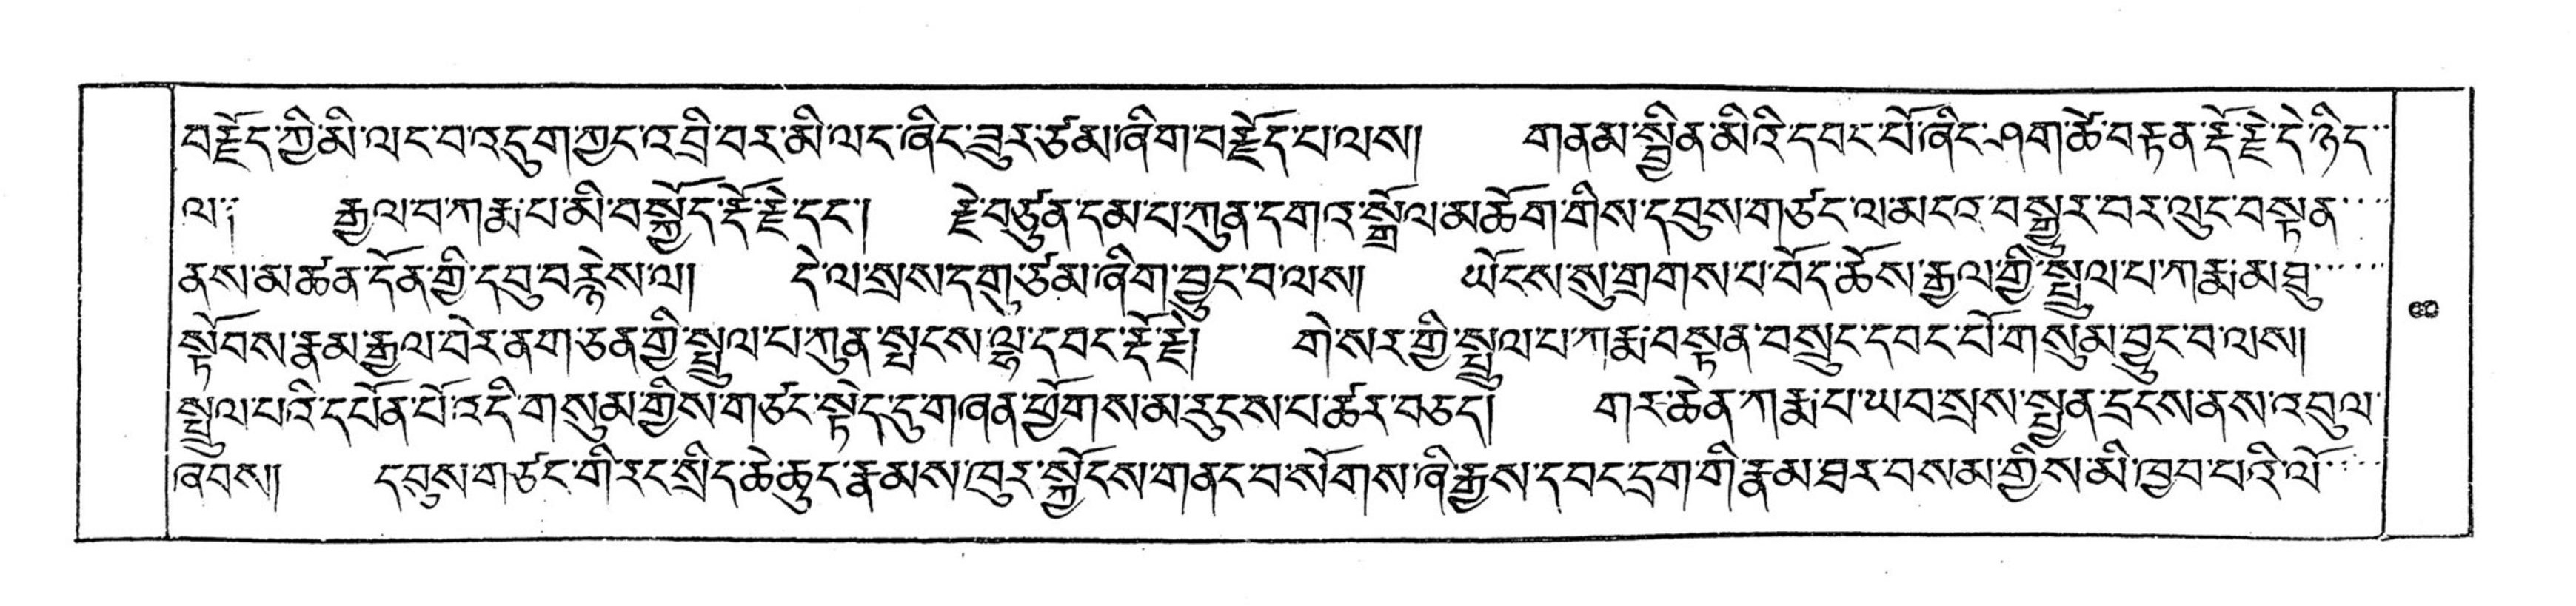 བརྗོད་ཀྱི་མི་ལང་བ་འདུག་ཀྱང་འབྲི་བར་མི་ལང་ཞིང་ཟུར་ཙམ་ཞིག་བརྗོད་པ་ལས། གནམ་སྦྱིན་མིའི་དབང་པོ་ཞིང་ཤག་ཚེ་བརྟན་རྡོ་རྗེ་དེ་ཉིད་
ལ༔ རྒྱལ་བ་ཀརྨ་པ་མི་བསྐྱོད་རྡོ་རྗེ་དང་། རྗེ་བཙུན་དམ་པ་ཀུན་དགའ་སྒྲོལ་མཆོག་གིས་དབུས་གཙང་ལ་མངའ་བསྒྱུར་བར་ལུང་བསྟན་
ནས་མ་ཚན་དོན་གྱི་དབུ་བརྙེས་ལ། དེ་ལ་སྲས་དགུ་ཙམ་ཞིག་བྱུང་བ་ལས། ཡོངས་སུ་གྲགས་པ་བོད་ཆོས་རྒྱལ་གྱི་སྤྲུལ་པ་ཀརྨ་མཐུ་
སྟོབས་རྣམ་རྒྱལ་བེར་ནག་ཅན་གྱི་སྤྲུལ་པ་ཀུན་སྤངས་ལྷ་དབང་རྡོ་རྗེ། གེ་སར་གྱི་སྤྲུལ་པ་ཀརྨ་བསྟན་བསྲུང་དབང་པོ་གསུམ་བྱུང་བ་ལས།
སྤྲུལ་པའི་དཔོན་པོ་འདི་གསུམ་གྱིས་གཙང་སྟེད་དུ་གཞན་ཕྱོགས་མ་རུངས་པ་ཚར་བཅད། གར་ཆེན་ཀརྨ་པ་ཡབ་སྲས་སྤྱན་དྲངས་ནས་འབུལ་
ཞབས། དབུས་གཙང་གི་རང་སྲིད་ཆེ་ཆུང་རྣམས་ཁུར་སྐྱོངས་གནང་བ་སོགས་ཞི་རྒྱས་དབང་དྲག་གི་རྣམ་ཐར་བསམ་གྱིས་མི་ཁྱབ་པའི་ལོ་